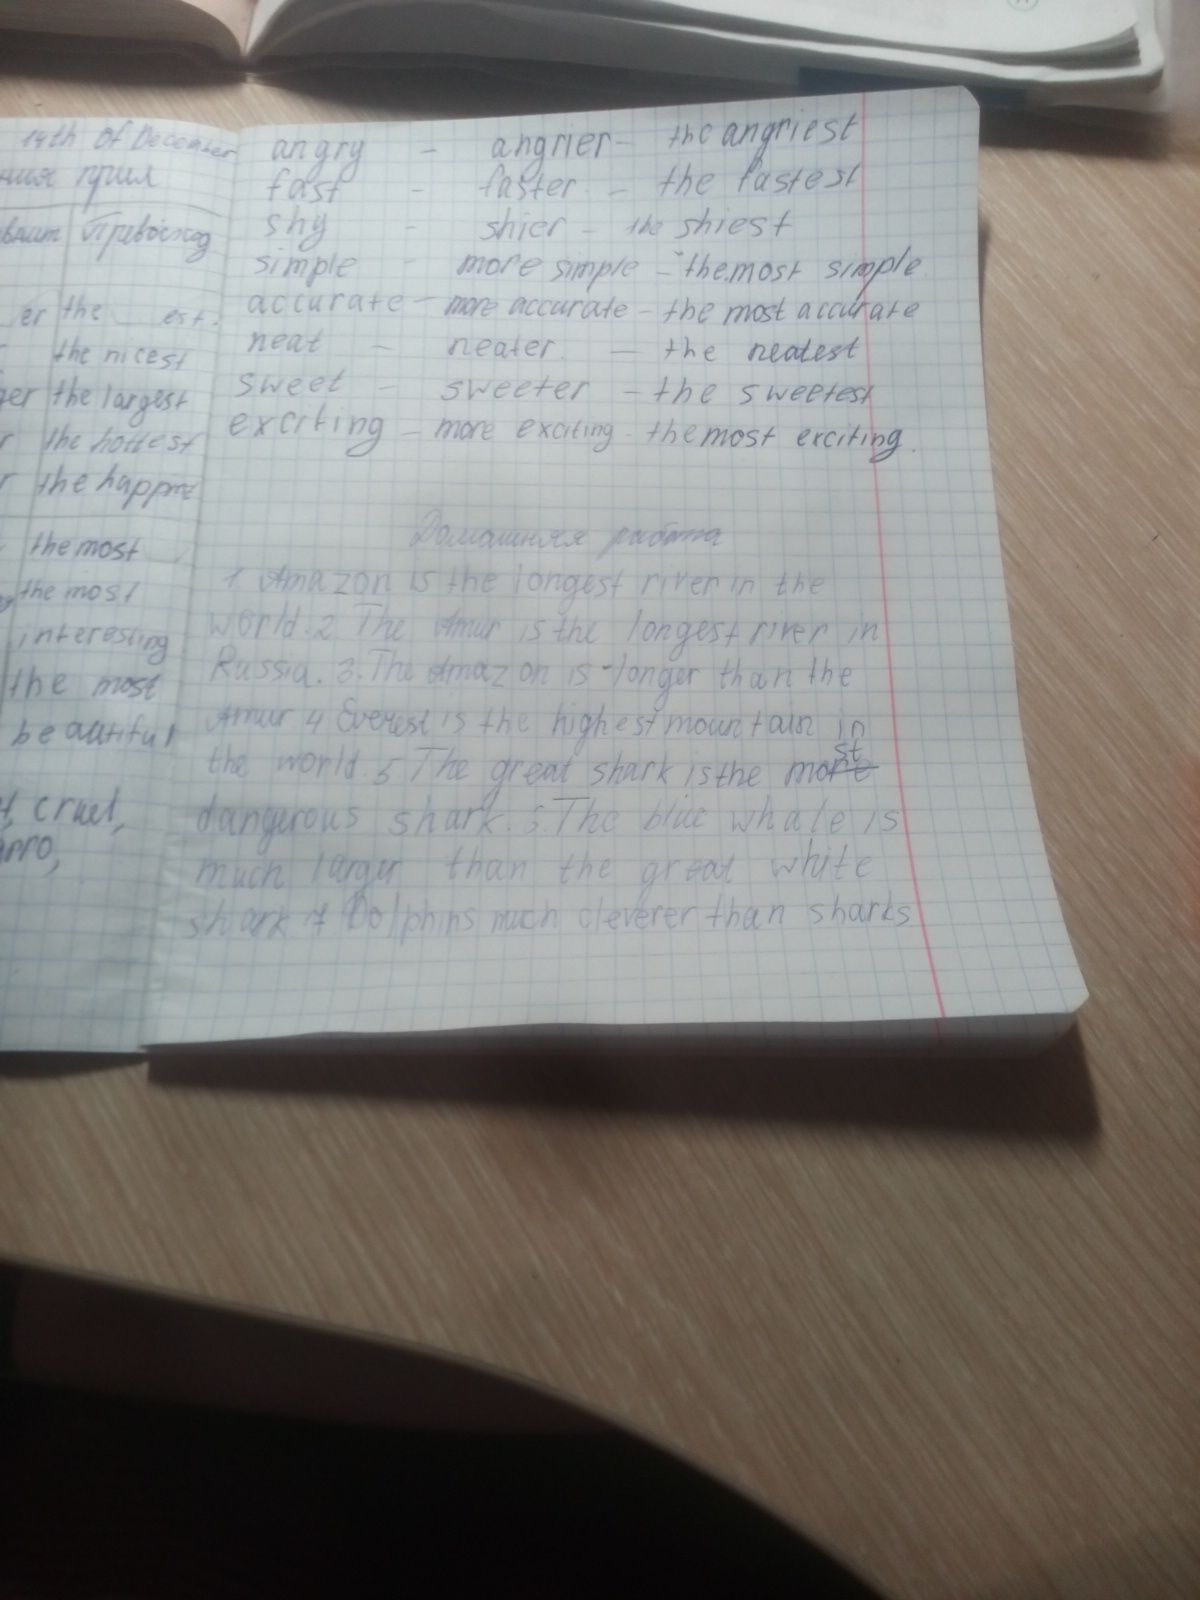 14th of December
прил
Превосход
er the est.
the nicest
ger the largest
the hottest
the happiest
the most
the most
interesting
the most
beautiful
cruel,
angry - angrier - the angriest
fast - faster - the fastest
shy - shier - the shiest
simple - more simple - the most simple
accurate - more accurate - the most accurate
neat - neater - the neatest
sweet - sweeter - the sweetest
exciting - more exciting - the most exciting.
Домашняя работа
1 Amazon is the longest river in the
world. 2 The Amur is the longest river in
Russia. 3. The Amazon is longer than the
Amur 4 Everest is the highest mountain in
the world. 5 The great shark is the most
dangerous shark. 6. The blue whale is
much larger than the great white
shark 7 Dolphins much cleverer than sharks